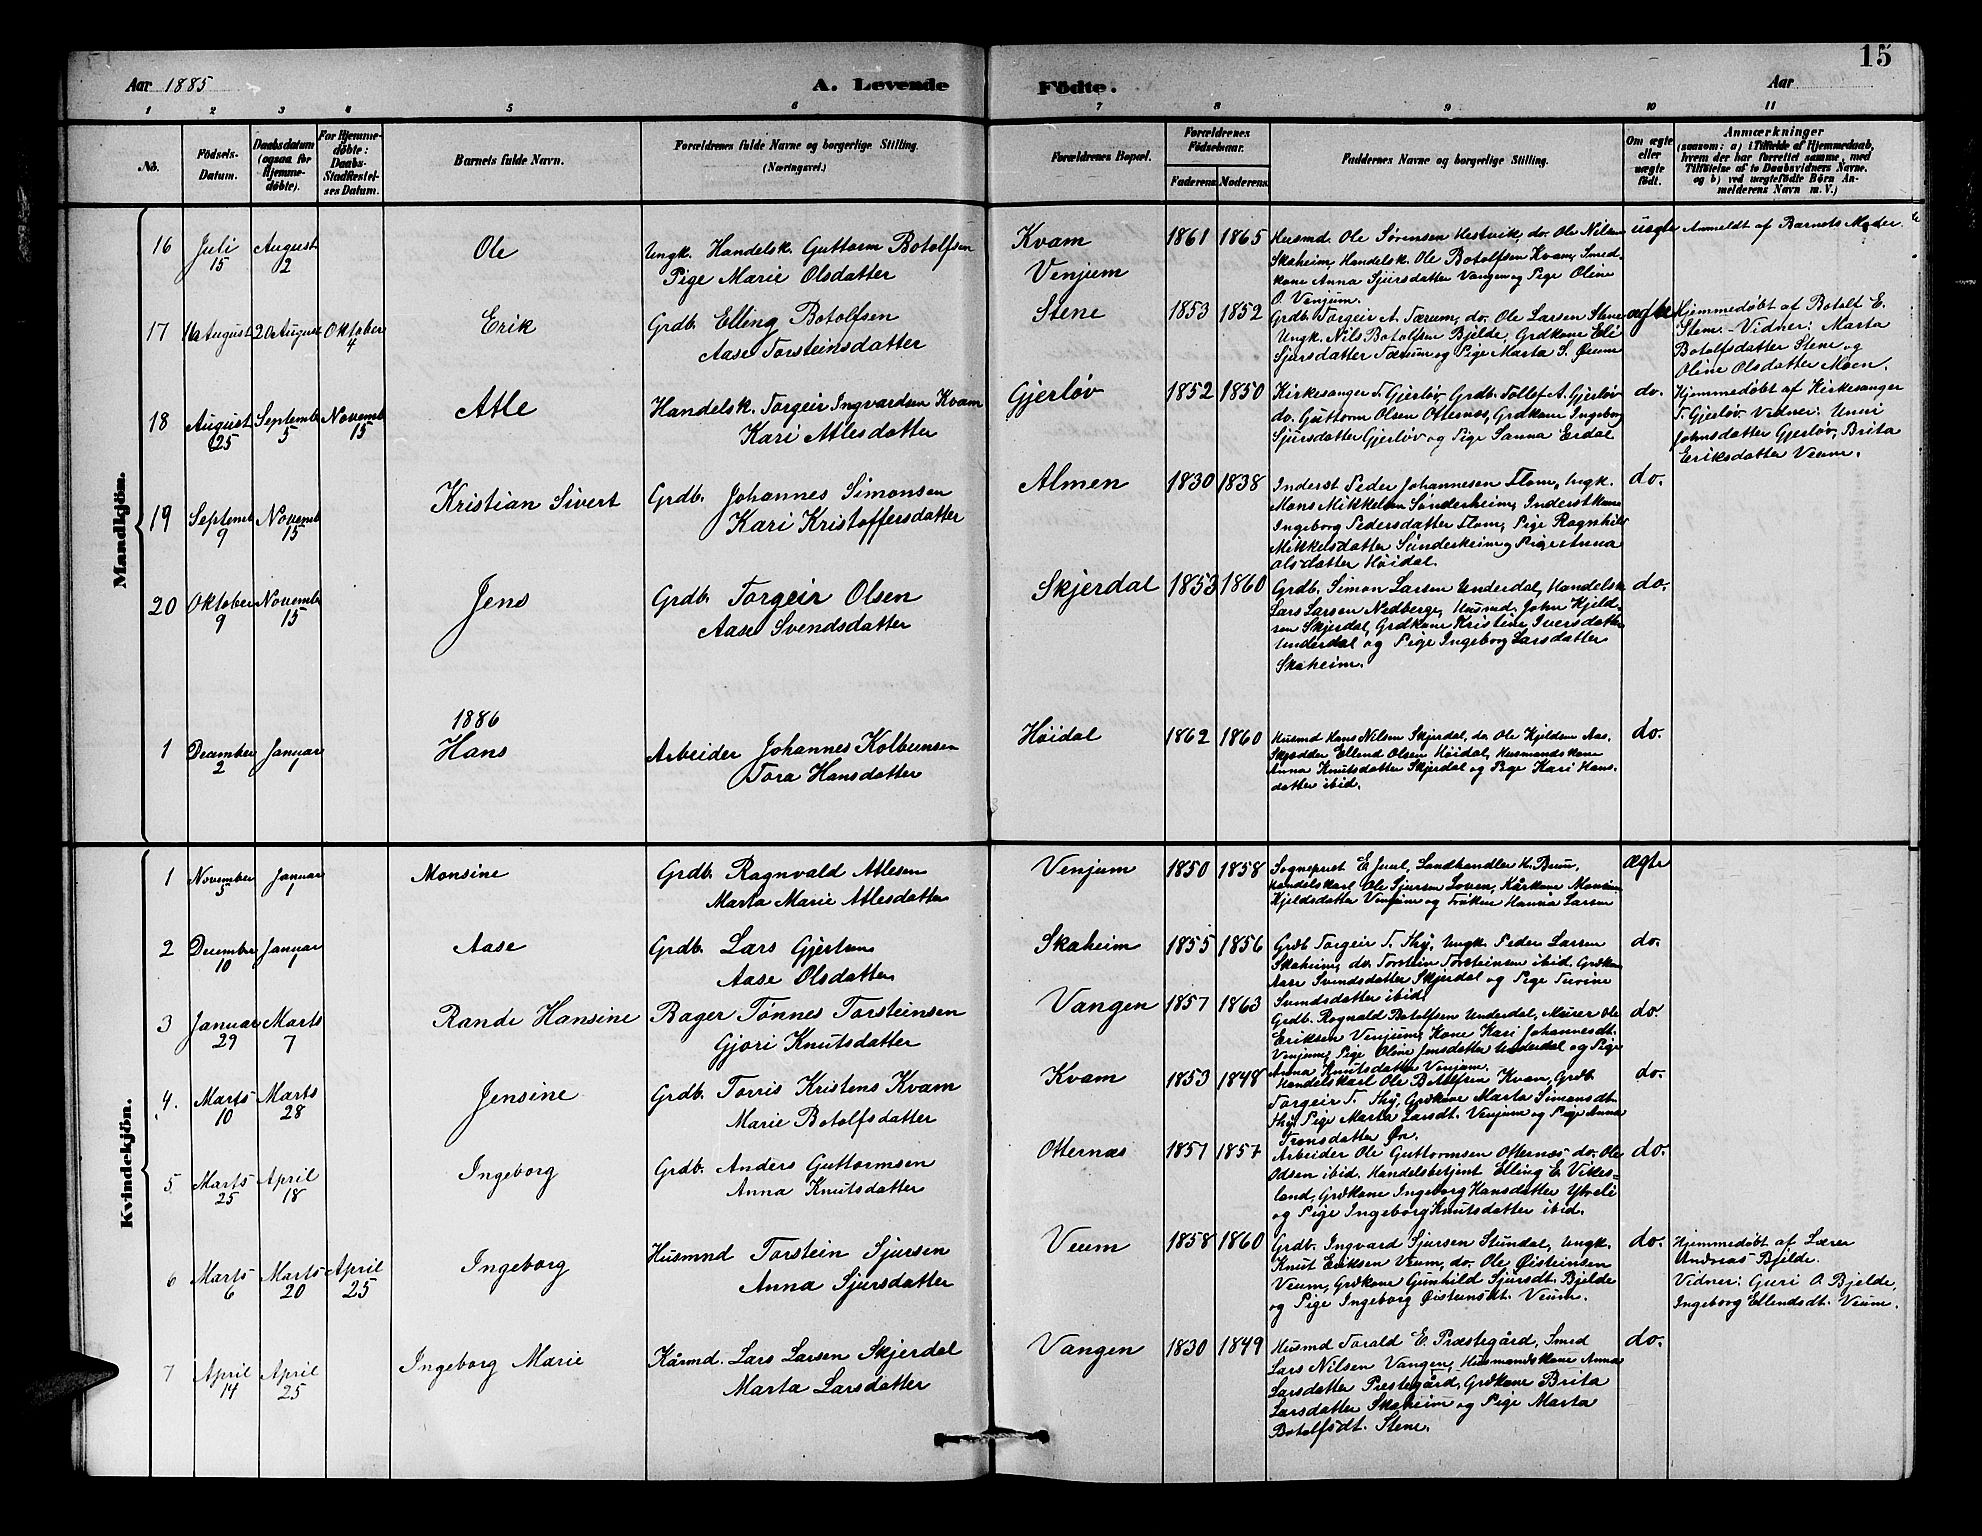 15
Aar 1885
A. Levende
Födte.
Aar
1 2 3 4 5 6 7 8 9 10 11
No.
Födsels-
Datum.
Daabsdatum
(ogsaa for
Hjemme-
døbte).
For Hjemme-
døbte:
Daabs-
Stadfæstel-
ses Datum.
Barnets fulde Navn.
Forældrenes fulde Navne og borgerlige Stilling.
(Næringsvei.)
Forældrenes Bopæl.
Forældrenes
Födselsaar.
Faderens. Moderens.
Faddernes Navne og borgerlige Stilling.
Om ægte
eller
uægte
födt.
Anmærkninger
(saasom: a) i Tilfælde af Hjemmedaab,
hvem der har forrettet samme, med
Tilföielse af to Daabsvidners Navne.
og b) ved uægtefödte Börn An-
melderens Navn m. V.)
Mandkjön.
16 Juli 15 August 2 Ole
Ungk. Handelsk. Guttorm Botolfsen
Pige Marie Olsdatter
Kvam
Venjum
1861 1865
Husmd. Ole Sørensen Hestvik, do. Ole Nilsen
Skaheim, Handelsk. Ole Botolfsen Kvam, Smed-
kone Anna Sjursdatter Vangen og Pige Oline
O. Venjum.
uægte
Anmeldt af Barnets Moder.
17 16 August 20 August Oktober 4 Erik
Grdb. Elling Botolfsen
Aase Torsteinsdatter
Stene
1853 1852
Grdb. Torgeir A. Tærum, do. Ole Larsen Stene
Ungk. Nils Botolfsen Bjelde, Grdkone Eli
Sjursdatter Tærum og Pige Marta S. Øium
ægte
Hjemmedøbt af Botolf E.
Stene. - Vidner: Marta
Botolfsdatter Stene og
Oline Olsdatter Moen.
18 August 25 Septemb 5 Novemb 15 Atle
Handelsk. Torgeir Ingvardsen Kvam
Kari Atlesdatter
Gjerløv
1852 1850
Kirkesanger T. Gjerløv, Grdb. Tollef A. Gjerløv
do. Guttorm Olsen Otternæs, Grdkone Ingeborg
Sjursdatter Gjerløv og Pige Sanna Erdal
do.
Hjemmedøbt af Kirkesanger
T. Gjerløv. Vidner: Unni
Johnsdatter Gjerløv, Brita
Eriksdatter Veum.
19 Septemb 9 Novemb 15 Kristian Sivert
Grdb. Johannes Simonsen
Kari Kristoffersdatter
Almen
1830 1838
Inderst Peder Johannesen Flom, Ungk.
Mons Mikkelsen Sønderheim, Inderstkone
Ingeborg Pedersdatter Flom, Pige Ragnhild
Mikkelsdatter Sünderheim og Pige Anna
Olsdatter Høidal.
do.
20 Oktober 9 November 15 Jens
Grdb. Torgeir Olsen
Aase Svendsdatter
Skjerdal
1853 1860
Grdb. Simon Larsen Underdal, Handelsk.
Lars Larsen Nedberge, Husmd. John Kjeld-
sen Skjerdal, Grdkone Kristine Iversdatter
Underdal og Pige Ingeborg Larsdatter
Skaheim.
do.
1886
1 December 2 Januar 1 Hans
Arbeider Johannes Kolbeinsen
Tora Hansdatter
Høidal
1862 1860
Husmd Hans Nilsen Skjerdal, do. Ole Kjeldsen Aas.
Skrædder Ellend Olsen Høidal, Husmandskone
Anna Knutsdatter Skjerdal og Pige Kari Hans-
datter ibid.
do.
Kvindekjön.
1 November 5 Januar 1 Monsine
Grdb. Ragnvald Atlesen
Marta Marie Atlesdatter
Venjum
1850 1858
Sogneprest E. Juul, Landhandler H. Brun,
Handelskarl Ole Sjursen Loven, Kårkone Monsine
Kjeldsdatter Venjum og Frøken Hanna Larsen
Ægte
2 December 10 Januar 1 Aase
Grdb. Lars Gjertsen
Aase Olsdatter
Skaheim
1855 1856
Grdb Torgeir T. Thy, Ungk. Peder Larsen
Skaheim, do. Torstein Torsteinsen ibid. Grdkone
Aase Svendsdatter Skjerdal og Pige Turine
Svendsdatter ibid.
do.
3 Januar 29 Marts 7 Rande Hansine
Bager Tønnes Torsteinsen
Gjøri Knutsdatter
Vangen
1857 1863
Grdb. Ragnald Botolfsen Underdal, Murer Ole
Eriksen Venjum, Kone Kari Johannesdt.
Venjum, Pige Oline Jensdatter Underdal og Pige
Anna Knutsdatter Venjum.
do.
4. Marts 10 Marts 28 Jensine
Grdb. Torris Kristens Kvam
Marie Botolfsdatter
Kvam
1853 1848
Handelskarl Ole Botolfsen Kvam, Grdb.
Torgeir T. Thy, Grdkone Marta Simonsdt.
Thy, Pige Marta Larsdt. Venjum og Pige Anna
Tronsdatter Øn.
do.
5 Marts 25 April 18 Ingeborg
Grdb. Anders Guttormsen
Anna Knutsdatter
Otternæs
1857 1857
Arbeider Ole Guttormsen Otternæs, do. Ole
Odsen ibid, Handelsbetjent Elling E. Vikes-
land, Grdkone Ingeborg Hansdatter Ytreli
og Pige Ingeborg Knutsdatter ibid.
do.
6 Marts 6 Marts 20 April 25 Ingeborg
Husmnd Torstein Sjursen
Anna Sjursdatter
Veum
1858 1860
Grdb. Ingvard Sjursen Stundal, Ungk.
Knut Eriksen Veum, do. Ole Øisteinsen
Veum, Grdkone Gunhild Sjursdt. Bjelde
og Pige Ingeborg Øisteinsdt. Veum.
do.
Hjemmedøbt af Lærer
Andreas Bjelde.
Vidner: Guri O. Bjelde,
Ingeborg Ellendsdt. Veum.
7 April 14 April 25 Ingeborg Marie
Kårmd. Lars Larsen Skjerdal
Marta Larsdatter
Vangen
1830 1849
Husmd Torald E. Præstegård, Smed
Lars Nilsen Vangen, Husmandskone Anna
Larsdatter Prestegård, Grdkone Brita
Larsdatter Skaheim og Pige Marta
Botolfsdt. Stene.
do.